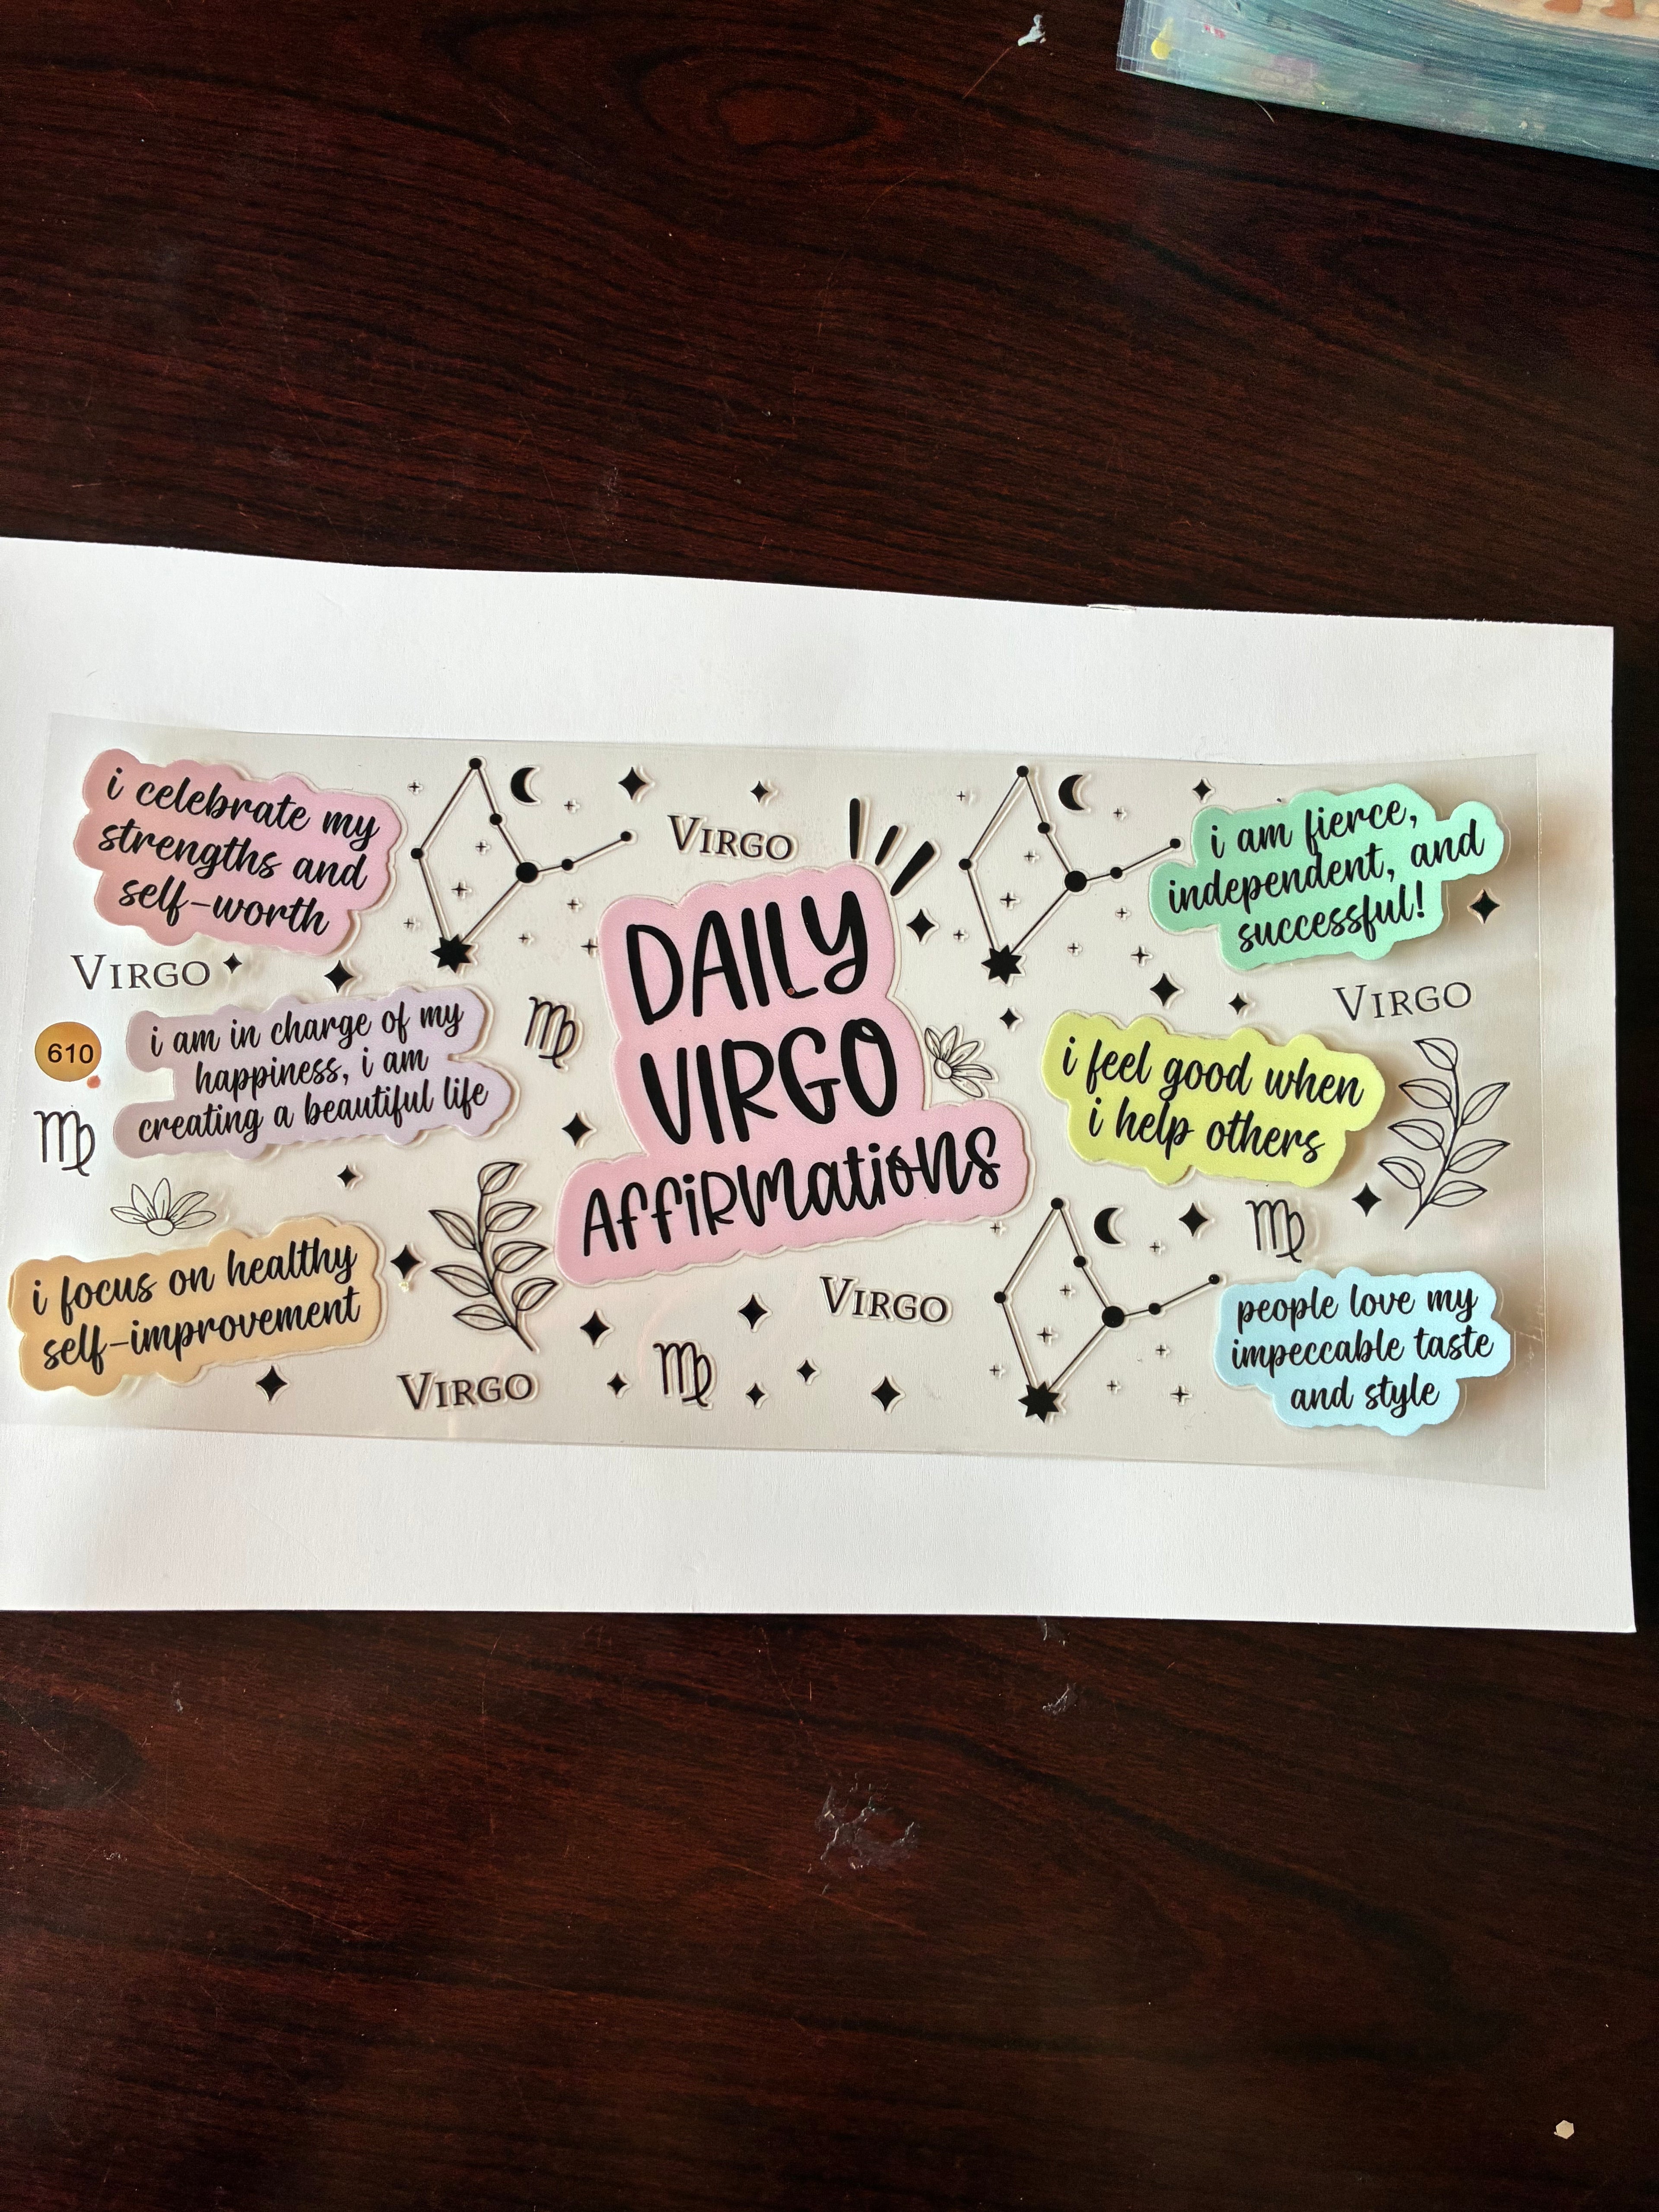 i celebrate my
strengths and
self-worth
VIRGO
610
i am in charge of my
happiness, i am
creating a beautiful life
i focus on healthy
self-improvement
VIRGO
VIRGO
DAILY
VIRGO
AFFIRMATIONS
VIRGO
i am fierce,
independent, and
successful!
VIRGO
i feel good when
i help others
people love my
impeccable taste
and style